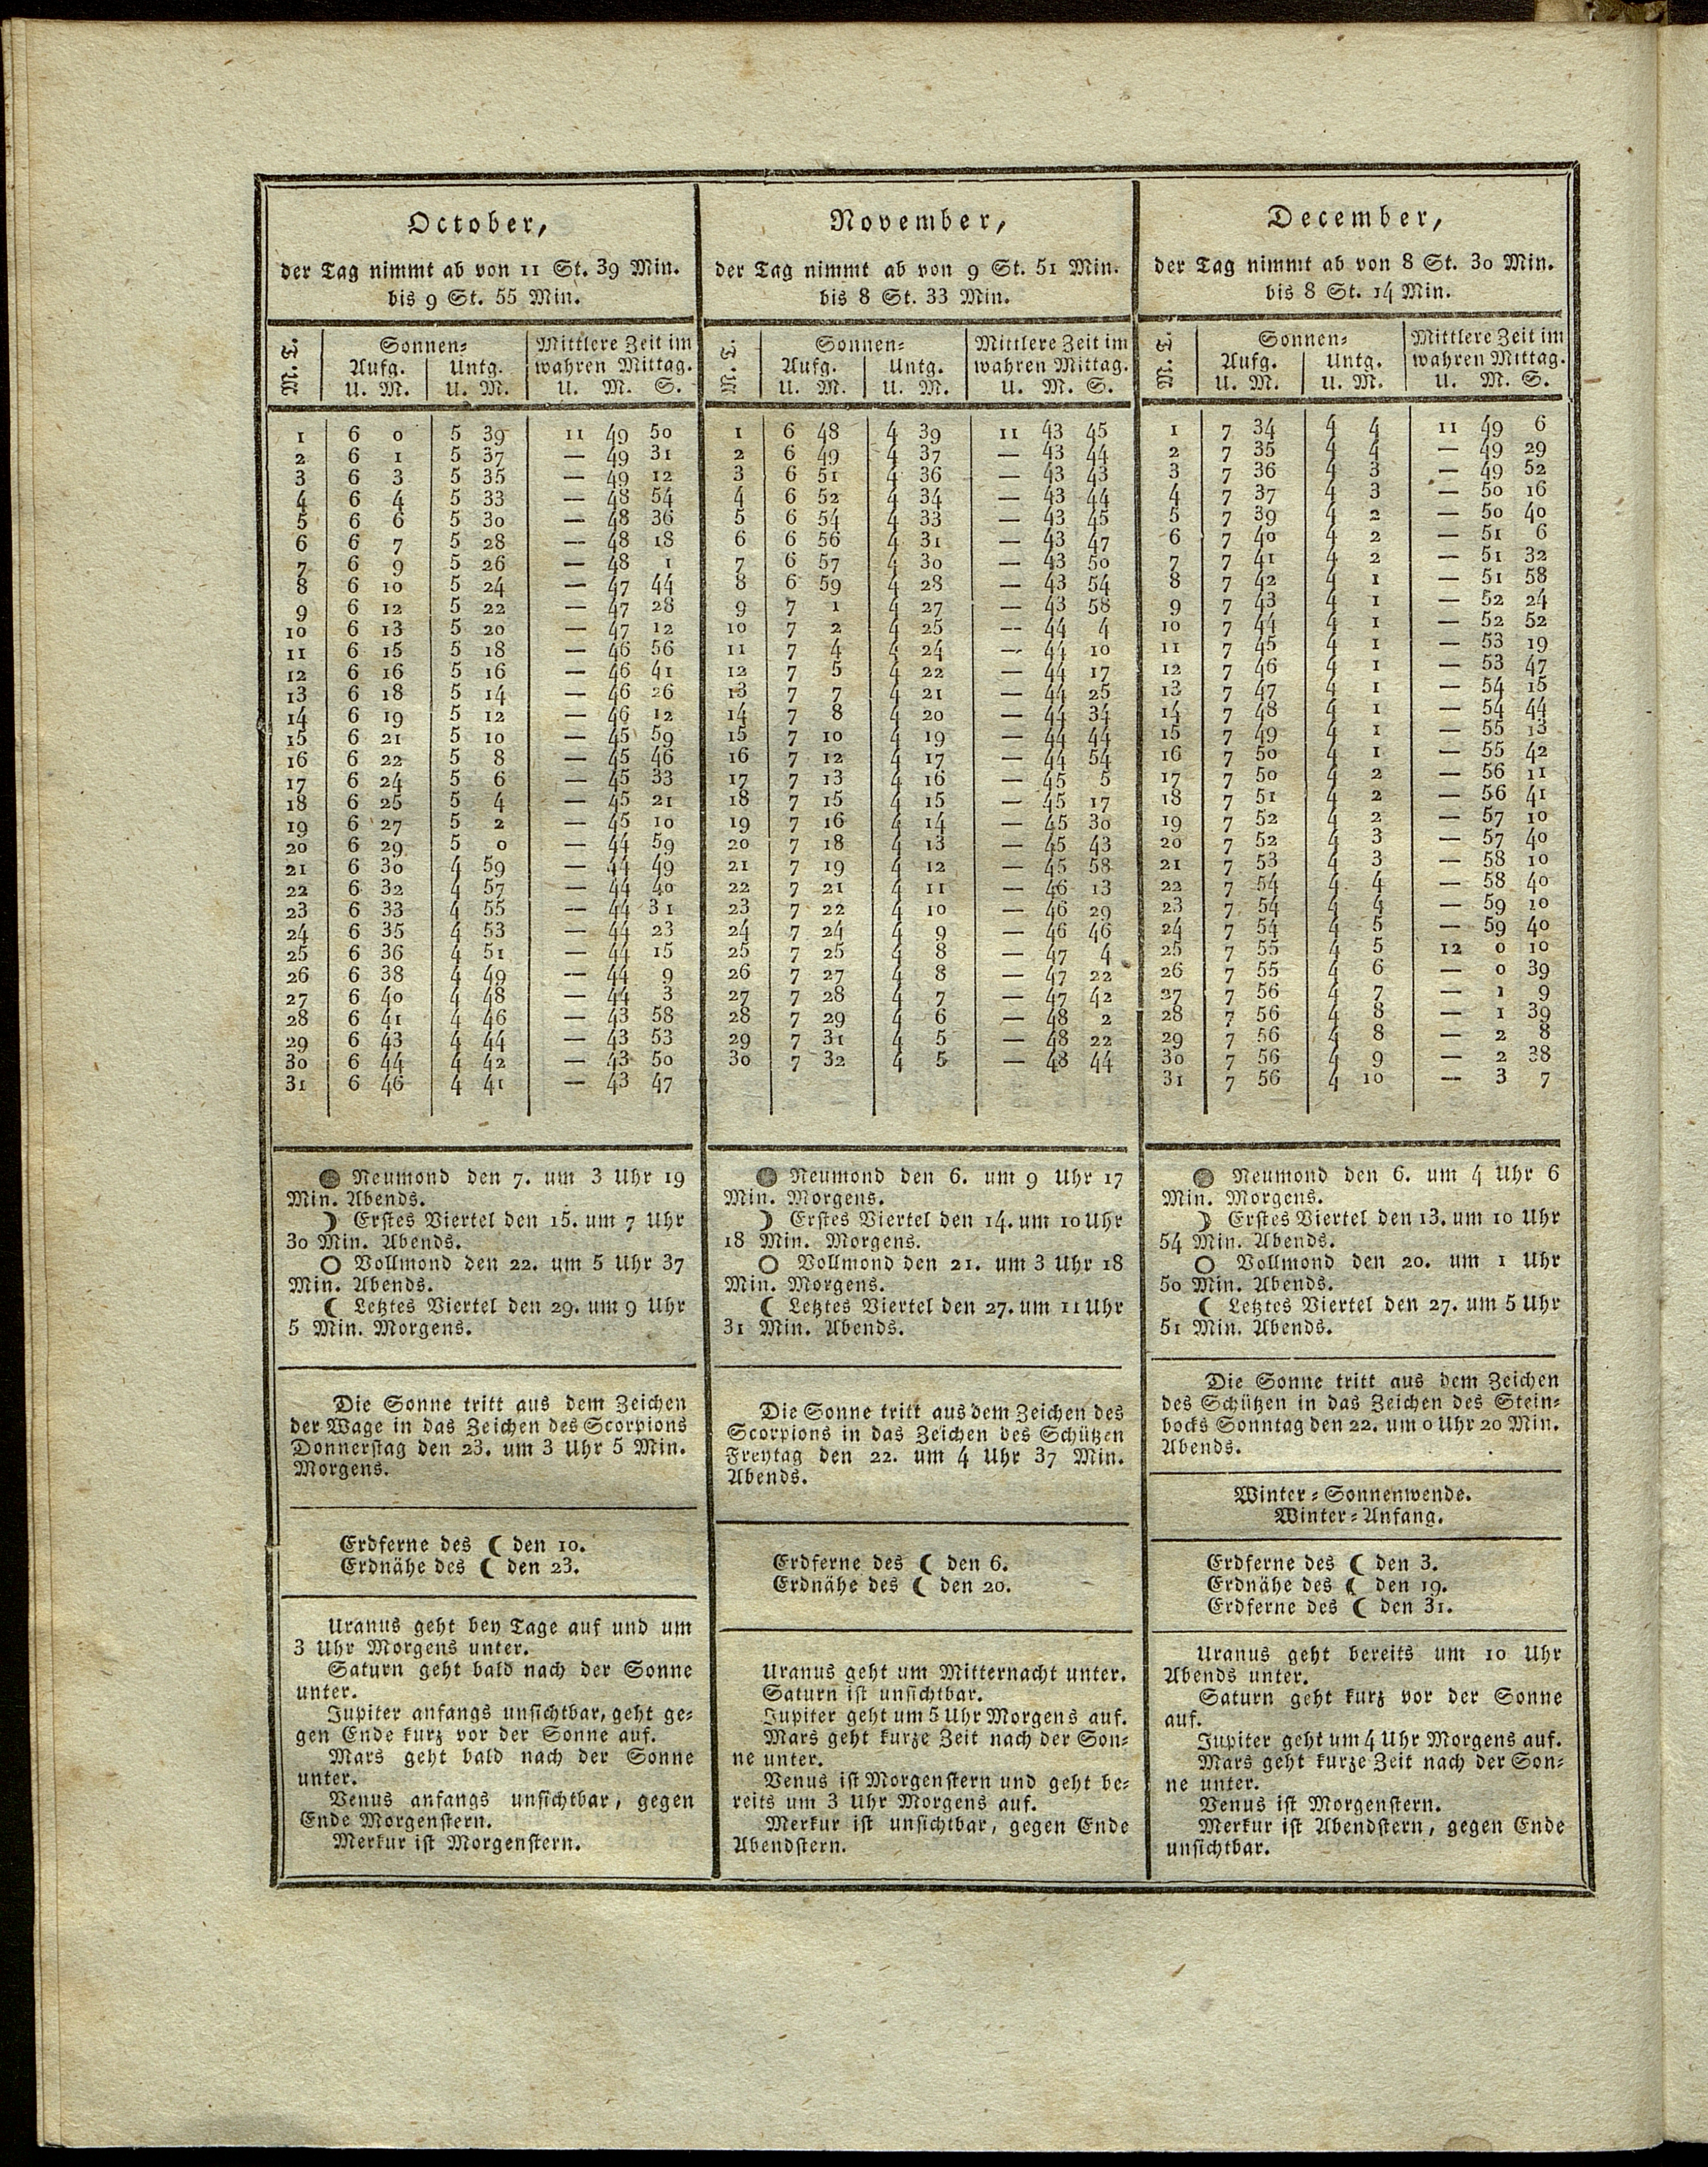 October,
der Tag nimmt ab von 11 St. 39 Min.
bis 9 St. 55 Min.
M. T.
Sonnen=
Aufg.
Untg.
U. M.
U. M.
Mittlere Zeit im
wahren Mittag.
U. M. S.
1 6 0 5 39 11 49 50
2 6 1 5 37 — 49 31
3 6 3 5 35 — 49 12
4 6 4 5 33 — 48 54
5 6 6 5 30 — 48 36
6 6 7 5 28 — 48 18
7 6 9 5 26 — 48 1
8 6 10 5 24 — 47 44
9 6 12 5 22 — 47 28
10 6 13 5 20 — 47 12
11 6 15 5 18 — 46 56
12 6 16 5 16 — 46 41
13 6 18 5 14 — 46 26
14 6 19 5 12 — 46 12
15 6 21 5 10 — 45 59
16 6 22 5 8 — 45 46
17 6 24 5 6 — 45 33
18 6 25 5 4 — 45 21
19 6 27 5 2 — 45 10
20 6 29 5 0 — 44 59
21 6 30 4 59 — 44 49
22 6 32 4 57 — 44 40
23 6 33 4 55 — 44 31
24 6 35 4 53 — 44 23
25 6 36 4 51 — 44 15
26 6 38 4 49 — 44 9
27 6 40 4 48 — 44 3
28 6 41 4 46 — 43 58
29 6 43 4 44 — 43 53
30 6 44 4 42 — 43 50
31 6 46 4 41 — 43 47
Neumond den 7. um 3 Uhr 19
Min. Abends.
☽ Erstes Viertel den 15. um 7 Uhr
30 Min. Abends.
○ Vollmond den 22. um 5 Uhr 37
Min. Abends.
☾ Letztes Viertel den 29. um 9 Uhr
5 Min. Morgens.
Die Sonne tritt aus dem Zeichen
der Wage in das Zeichen des Scorpions
Donnerstag den 23. um 3 Uhr 5 Min.
Morgens.
Erdferne des ☾ den 10.
Erdnähe des ☾ den 23.
Uranus geht bey Tage auf und um
3 Uhr Morgens unter.
Saturn geht bald nach der Sonne
unter.
Jupiter anfangs unsichtbar, geht ge=
gen Ende kurz vor der Sonne auf.
Mars geht bald nach der Sonne
unter.
Venus anfangs unsichtbar, gegen
Ende Morgenstern.
Merkur ist Morgenstern.
November,
der Tag nimmt ab von 9 St. 51 Min.
bis 8 St. 33 Min.
M. T.
Sonnen=
Aufg.
Untg.
U. M.
U. M.
Mittlere Zeit im
wahren Mittag.
U. M. S.
1 6 48 4 39 11 43 45
2 6 49 4 37 — 43 44
3 6 51 4 36 — 43 43
4 6 52 4 34 — 43 44
5 6 54 4 33 — 43 45
6 6 56 4 31 — 43 47
7 6 57 4 30 — 43 50
8 6 59 4 28 — 43 54
9 7 1 4 27 — 43 58
10 7 2 4 25 — 44 4
11 7 4 4 24 — 44 10
12 7 5 4 22 — 44 17
13 7 7 4 21 — 44 25
14 7 8 4 20 — 44 34
15 7 10 4 19 — 44 44
16 7 12 4 17 — 44 54
17 7 13 4 16 — 45 5
18 7 15 4 15 — 45 17
19 7 16 4 14 — 45 30
20 7 18 4 13 — 45 43
21 7 19 4 12 — 45 58
22 7 21 4 11 — 46 13
23 7 22 4 10 — 46 29
24 7 24 4 9 — 46 46
25 7 25 4 8 — 47 4
26 7 27 4 8 — 47 22
27 7 28 4 7 — 47 42
28 7 29 4 6 — 48 2
29 7 31 4 5 — 48 22
30 7 32 4 5 — 48 44
Neumond den 6. um 9 Uhr 17
Min. Morgens.
☽ Erstes Viertel den 14. um 10 Uhr
18 Min. Morgens.
○ Vollmond den 21. um 3 Uhr 18
Min. Morgens.
☾ Letztes Viertel den 27. um 11 Uhr
31 Min. Abends.
Die Sonne tritt aus dem Zeichen des
Scorpions in das Zeichen des Schützen
Freytag den 22. um 4 Uhr 37 Min.
Abends.
Erdferne des ☾ den 6.
Erdnähe des ☾ den 20.
Uranus geht um Mitternacht unter.
Saturn ist unsichtbar.
Jupiter geht um 5 Uhr Morgens auf.
Mars geht kurze Zeit nach der Son=
ne unter.
Venus ist Morgenstern und geht be=
reits um 3 Uhr Morgens auf.
Merkur ist unsichtbar, gegen Ende
Abendstern.
December,
der Tag nimmt ab von 8 St. 30 Min.
bis 8 St. 14 Min.
M. T.
Sonnen=
Aufg.
Untg.
U. M.
U. M.
Mittlere Zeit im
wahren Mittag.
U. M. S.
1 7 34 4 4 11 49 6
2 7 35 4 4 — 49 29
3 7 36 4 3 — 49 52
4 7 37 4 3 — 50 16
5 7 39 4 2 — 50 40
6 7 40 4 2 — 51 6
7 7 41 4 2 — 51 32
8 7 42 4 1 — 51 58
9 7 43 4 1 — 52 24
10 7 44 4 1 — 52 52
11 7 45 4 1 — 53 19
12 7 46 4 1 — 53 47
13 7 47 4 1 — 54 15
14 7 48 4 1 — 54 44
15 7 49 4 1 — 55 13
16 7 50 4 1 — 55 42
17 7 50 4 2 — 56 11
18 7 51 4 2 — 56 41
19 7 52 4 2 — 57 10
20 7 52 4 3 — 57 40
21 7 53 4 3 — 58 10
22 7 54 4 4 — 58 40
23 7 54 4 4 — 59 10
24 7 54 4 5 — 59 40
25 7 55 4 5 12 0 10
26 7 55 4 6 — 0 39
27 7 56 4 7 — 1 9
28 7 56 4 8 — 1 39
29 7 56 4 8 — 2 8
30 7 56 4 9 — 2 38
31 7 56 4 10 — 3 7
Neumond den 6. um 4 Uhr 6
Min. Morgens.
☽ Erstes Viertel den 13. um 10 Uhr
54 Min. Abends.
○ Vollmond den 20. um 1 Uhr
50 Min. Abends.
☾ Letztes Viertel den 27. um 5 Uhr
51 Min. Abends.
Die Sonne tritt aus dem Zeichen
des Schützen in das Zeichen des Stein=
bocks Sonntag den 22. um 0 Uhr 20 Min.
Abends.
Winter=Sonnenwende.
Winter=Anfang.
Erdferne des ☾ den 3.
Erdnähe des ☾ den 19.
Erdferne des ☾ den 31.
Uranus geht bereits um 10 Uhr
Abends unter.
Saturn geht kurz vor der Sonne
auf.
Jupiter geht um 4 Uhr Morgens auf.
Mars geht kurze Zeit nach der Son=
ne unter.
Venus ist Morgenstern.
Merkur ist Abendstern, gegen Ende
unsichtbar.